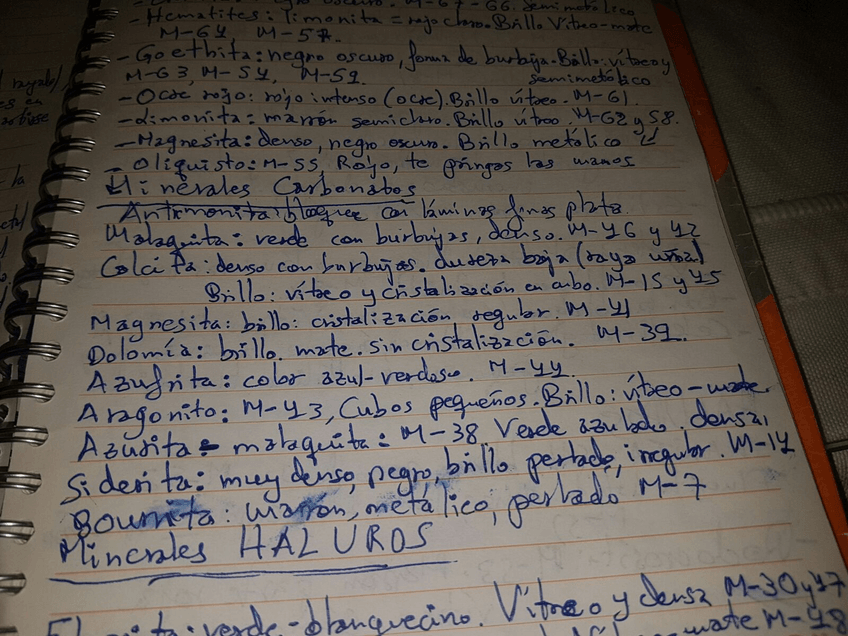 M-67-66. semimetálico
- Hematites: limonita = rojo claro. Brillo Vítreo-mate
M-64 M-57.
- Goethita: negro oscuro, forma de burbuja. Brillo: vítreo y
M-63, M-54, M-59. semimetálico
- Ocre rojo: rojo intenso (ocre). Brillo vítreo. M-61.
- Limonita: marrón semiclaro. Brillo vítreo. M-62 y 58.
- Magnesita: denso, negro oscuro. Brillo metálico
- Oligisto: M-55 Rojo, te pringas las manos
Minerales Carbonatos
Antimonita: bloque con láminas finas plata.
Malaquita: verde con burbujas, denso. M-46 y 42
Calcita: denso con burbujas. dureza baja (raya uña)
Brillo: vítreo y cristalización en cubo. M-15 y 45
Magnesita: brillo: cristalización regular. M-41
Dolomía: brillo. mate. sin cristalización. M-39.
Azufrita: color azul-verdoso. M-44.
Aragonito: M-43, Cubos pequeños. Brillo: vítreo-mate
Azurita - malaquita: M-38 Verde azulado. densa,
Siderita: muy denso, negro, brillo perlado, irregular. M-14
Bournita: marrón, metálico, perlado M-7
Minerales HALUROS
verde-blanquecino. Vítreo y densa M-30 y 47
mate M-48